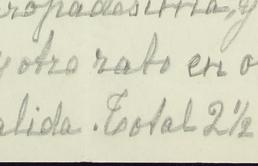 ropadesima, y
y otro rato en o
alida. Total 2½